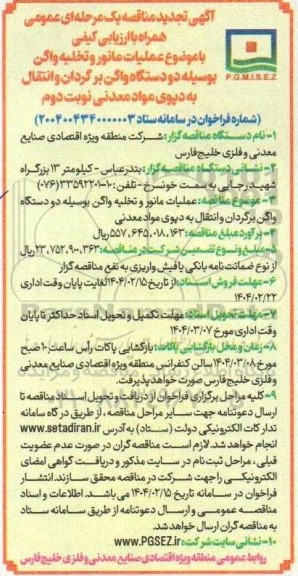 آگهی تجدید مناقصه یک مرحله‌ای عمومی
همراه با ارزیابی کیفی
با موضوع عملیات مانور و تخلیه واگن
بوسیله دو دستگاه واگن برگردان و انتقال
به دپوی مواد معدنی نوبت دوم
P.G.M.I.S.E.Z
(شماره فراخوان در سامانه ستاد ۲۰۰۴۰۰۴۳۴۰۰۰۰۰۰۳)
۱- نام دستگاه مناقصه گزار: شرکت منطقه ویژه اقتصادی صنایع
معدنی و فلزی خلیج فارس
۲- نشانی دستگاه مناقصه گزار: بندرعباس - کیلومتر ۱۳ بزرگراه
شهید رجایی به سمت خونسرخ - تلفن: ۱۰-۳۳۵۹۲۲۰۱ (۰۷۶)
۳- موضوع مناقصه: عملیات مانور و تخلیه واگن بوسیله دو دستگاه
واگن برگردان و انتقال به دپوی مواد معدنی
۴- برآورد مبلغ مناقصه: ۵۵۷,۶۴۵,۰۱۸,۱۶۳ ریال
۵- مبلغ و نوع تضمین شرکت در مناقصه: ۲۳,۷۵۲,۹۰۰,۳۶۳ ریال
از نوع ضمانت نامه بانکی یا فیش واریزی به نفع مناقصه گزار
۶- مهلت فروش اسناد: از تاریخ ۱۴۰۴/۰۲/۱۵ لغایت پایان وقت اداری
۱۴۰۴/۰۲/۲۲
۷- مهلت تحویل اسناد: مهلت تکمیل و تحویل اسناد حداکثر تا پایان
وقت اداری مورخ ۱۴۰۴/۰۳/۰۷
۸- زمان و محل بازگشایی پاکات: بازگشایی پاکات رأس ساعت ۱۰ صبح
مورخ ۱۴۰۴/۰۳/۰۸ سالن کنفرانس منطقه ویژه اقتصادی صنایع معدنی
و فلزی خلیج فارس صورت خواهد پذیرفت.
۹- کلیه مراحل برگزاری فراخوان از دریافت و تحویل اسناد مناقصه تا
ارسال دعوتنامه جهت سایر مراحل مناقصه، از طریق درگاه سامانه
تدارکات الکترونیکی دولت (ستاد) به آدرس www.setadiran.ir
انجام خواهد شد. لازم است مناقصه گران در صورت عدم عضویت
قبلی، مراحل ثبت نام در سایت مذکور و دریافت گواهی امضای
الکترونیکی را جهت شرکت در مناقصه محقق سازند. انتشار
فراخوان در سامانه تاریخ ۱۴۰۴/۰۲/۱۵ می باشد. اطلاعات و اسناد
مناقصه عمومی و ارسال دعوتنامه از طریق سامانه ستاد
به مناقصه گران ارسال خواهد شد.
۱۰- نشانی سایت شرکت: www.PGSEZ.ir
روابط عمومی منطقه ویژه اقتصادی صنایع معدنی و فلزی خلیج فارس